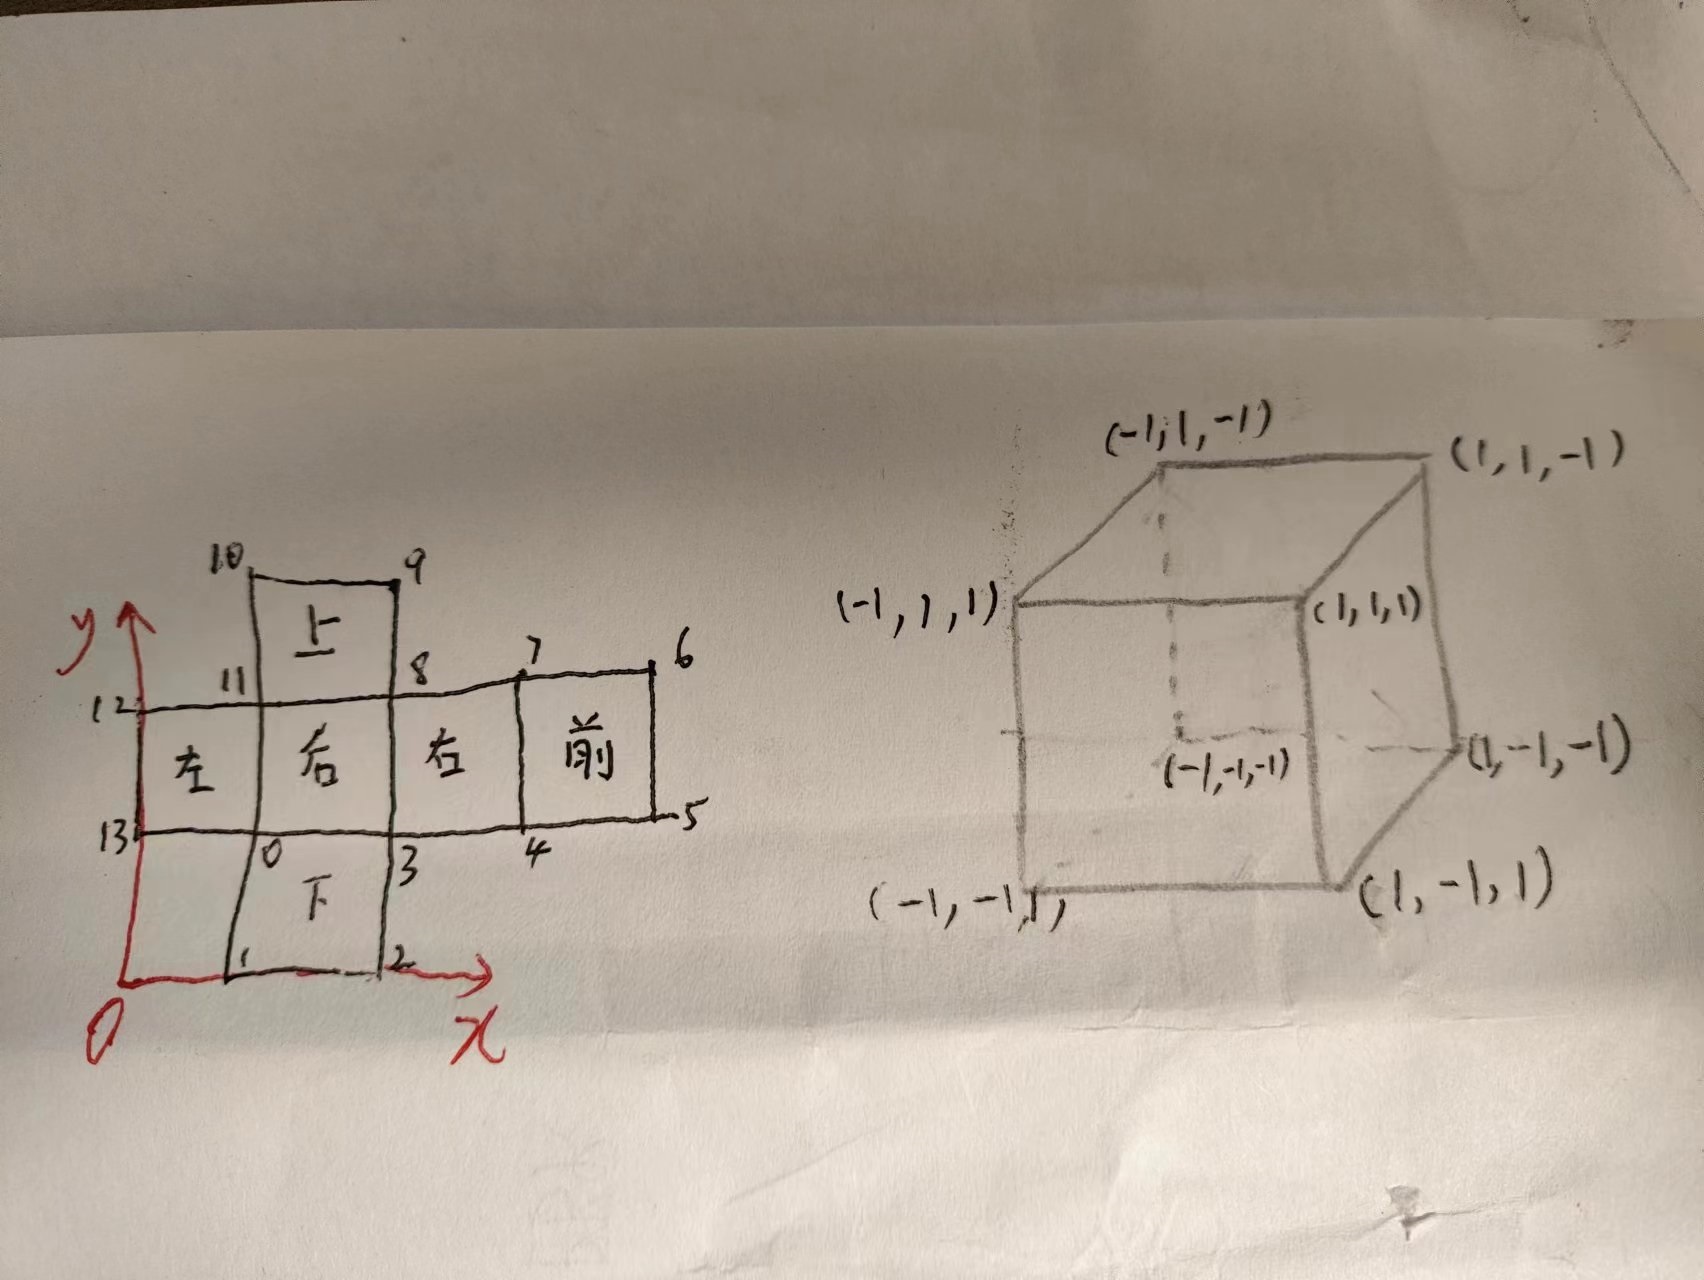 10 9
上
y
7 6
11 8
12
左 后 右 前
13 0 3 4 5
下
1 2
O x
(-1,1,-1) (1,1,-1)
(-1,1,1) (1,1,1)
(-1,-1,-1) (1,-1,-1)
(-1,-1,1, (1,-1,1)